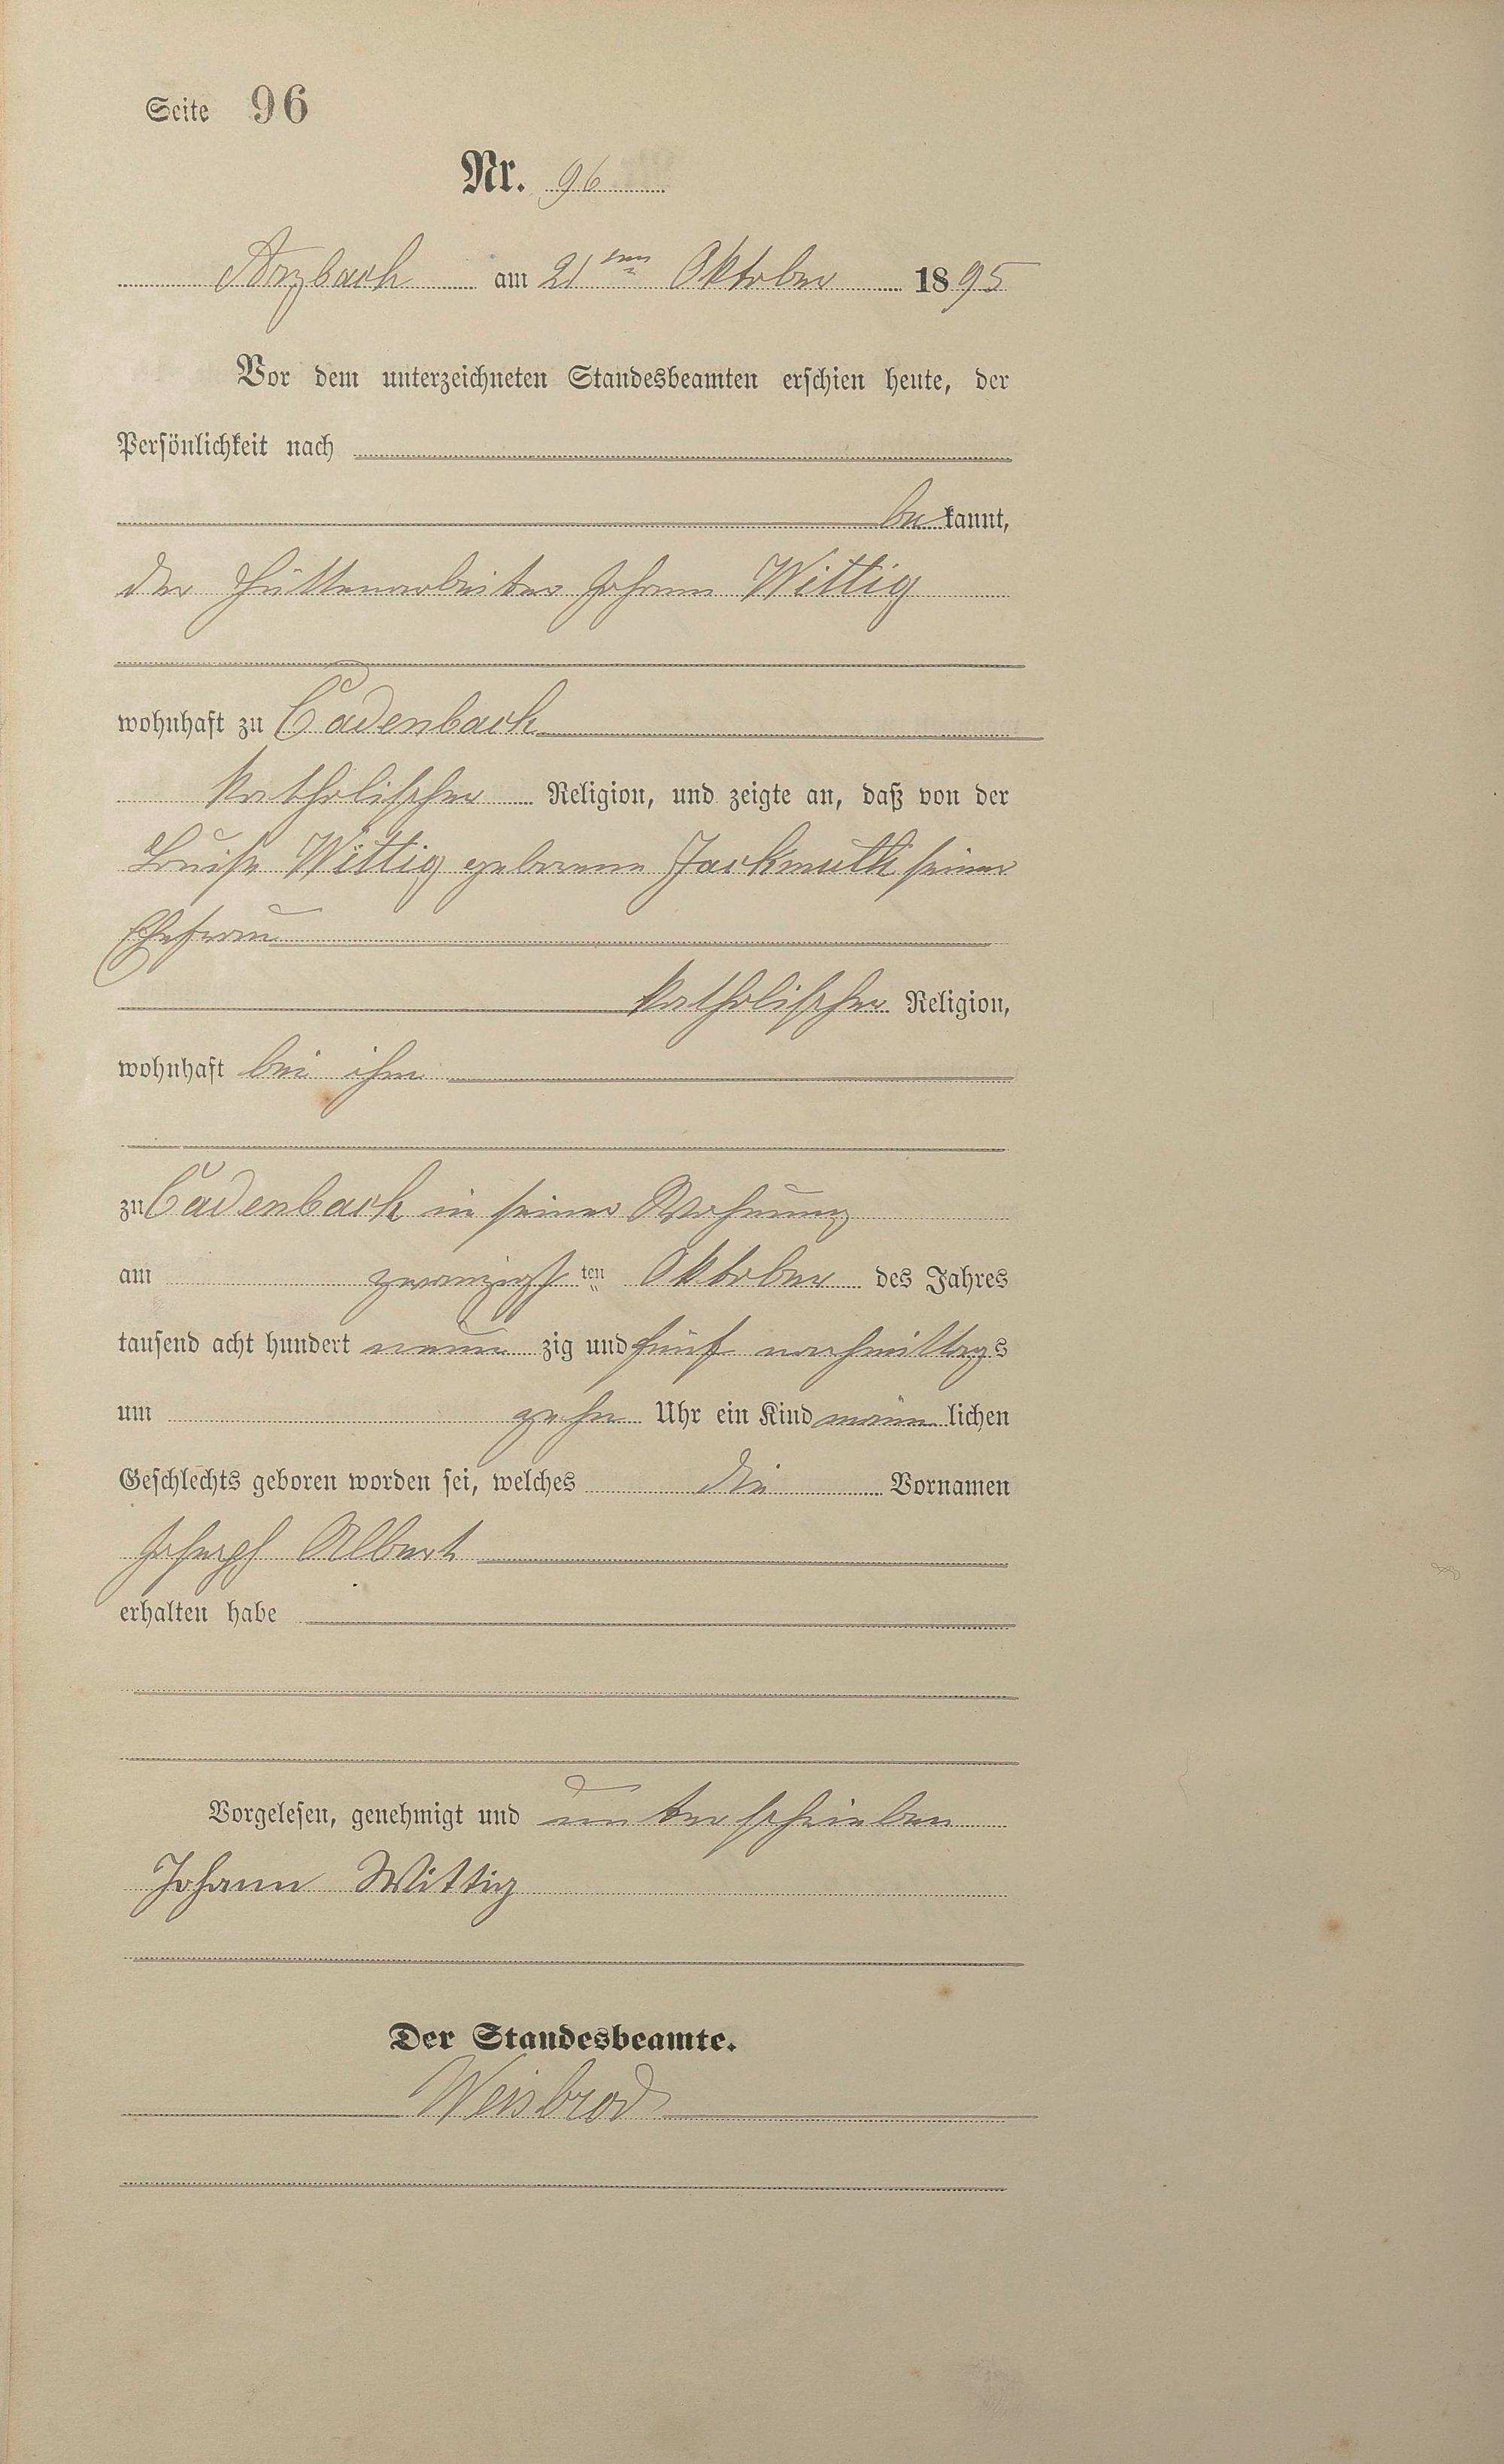 Seite 96
Nr. 96
Arzbach am 21ten Oktober 1895
Vor dem unterzeichneten Standesbeamten erschien heute, der
Persönlichkeit nach
bekannt,
der Hüttenarbeiter Johann Wittig
wohnhaft zu Cadenbach
katholischer Religion, und zeigte an, daß von der
Luise Wittig geborene Jackmuth seiner
Ehefrau
katholischer Religion,
wohnhaft bei ihm
zu Cadenbach in seiner Wohnung
am zwanzigsten Oktober des Jahres
tausend acht hundert neunzig und fünf nachmittags
um zehn Uhr ein Kind männlichen
Geschlechts geboren worden sei, welches die Vornamen
Joseph Albert
erhalten habe
Vorgelesen, genehmigt und unterschrieben
Johann Wittig
Der Standesbeamte.
Weisbrod